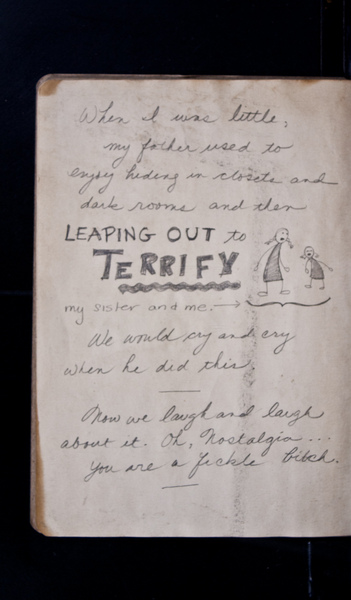 When I was little,
my father used to
enjoy hiding in closets and
dark rooms and then
LEAPING OUT to
TERRIFY
my sister and me. →
We would cry and cry
when he did this.
Now we laugh and laugh
about it. Oh, Nostalgia ...
You are a fickle bitch.